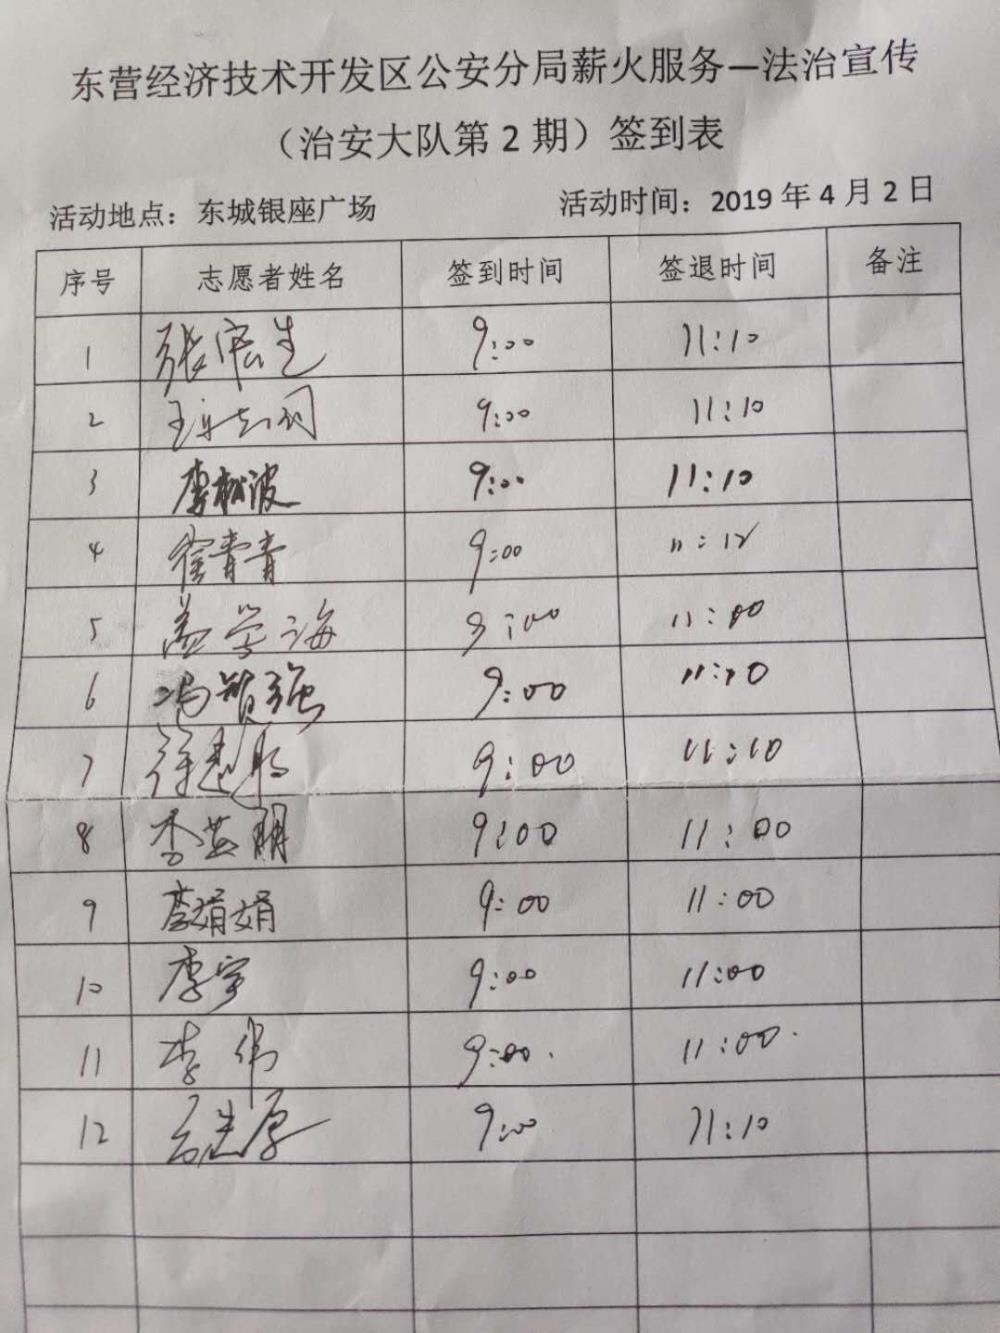 东营经济技术开发区公安分局薪火服务—法治宣传
（治安大队第 2 期）签到表
活动地点：东城银座广场 活动时间：2019 年 4 月 2 日
序号 志愿者姓名 签到时间 签退时间 备注
1 张宏生 9:00 11:10
2 9:00 11:10
3 李松波 9:00 11:10
4 徐青青 9:00 11:12
5 盖学海 9:00 11:00
6 冯智强 9:00 11:10
7 9:00 11:10
8 李英明 9:00 11:00
9 李娟娟 9:00 11:00
10 李宇 9:00 11:00
11 李伟 9:00. 11:00.
12 9:00 11:10